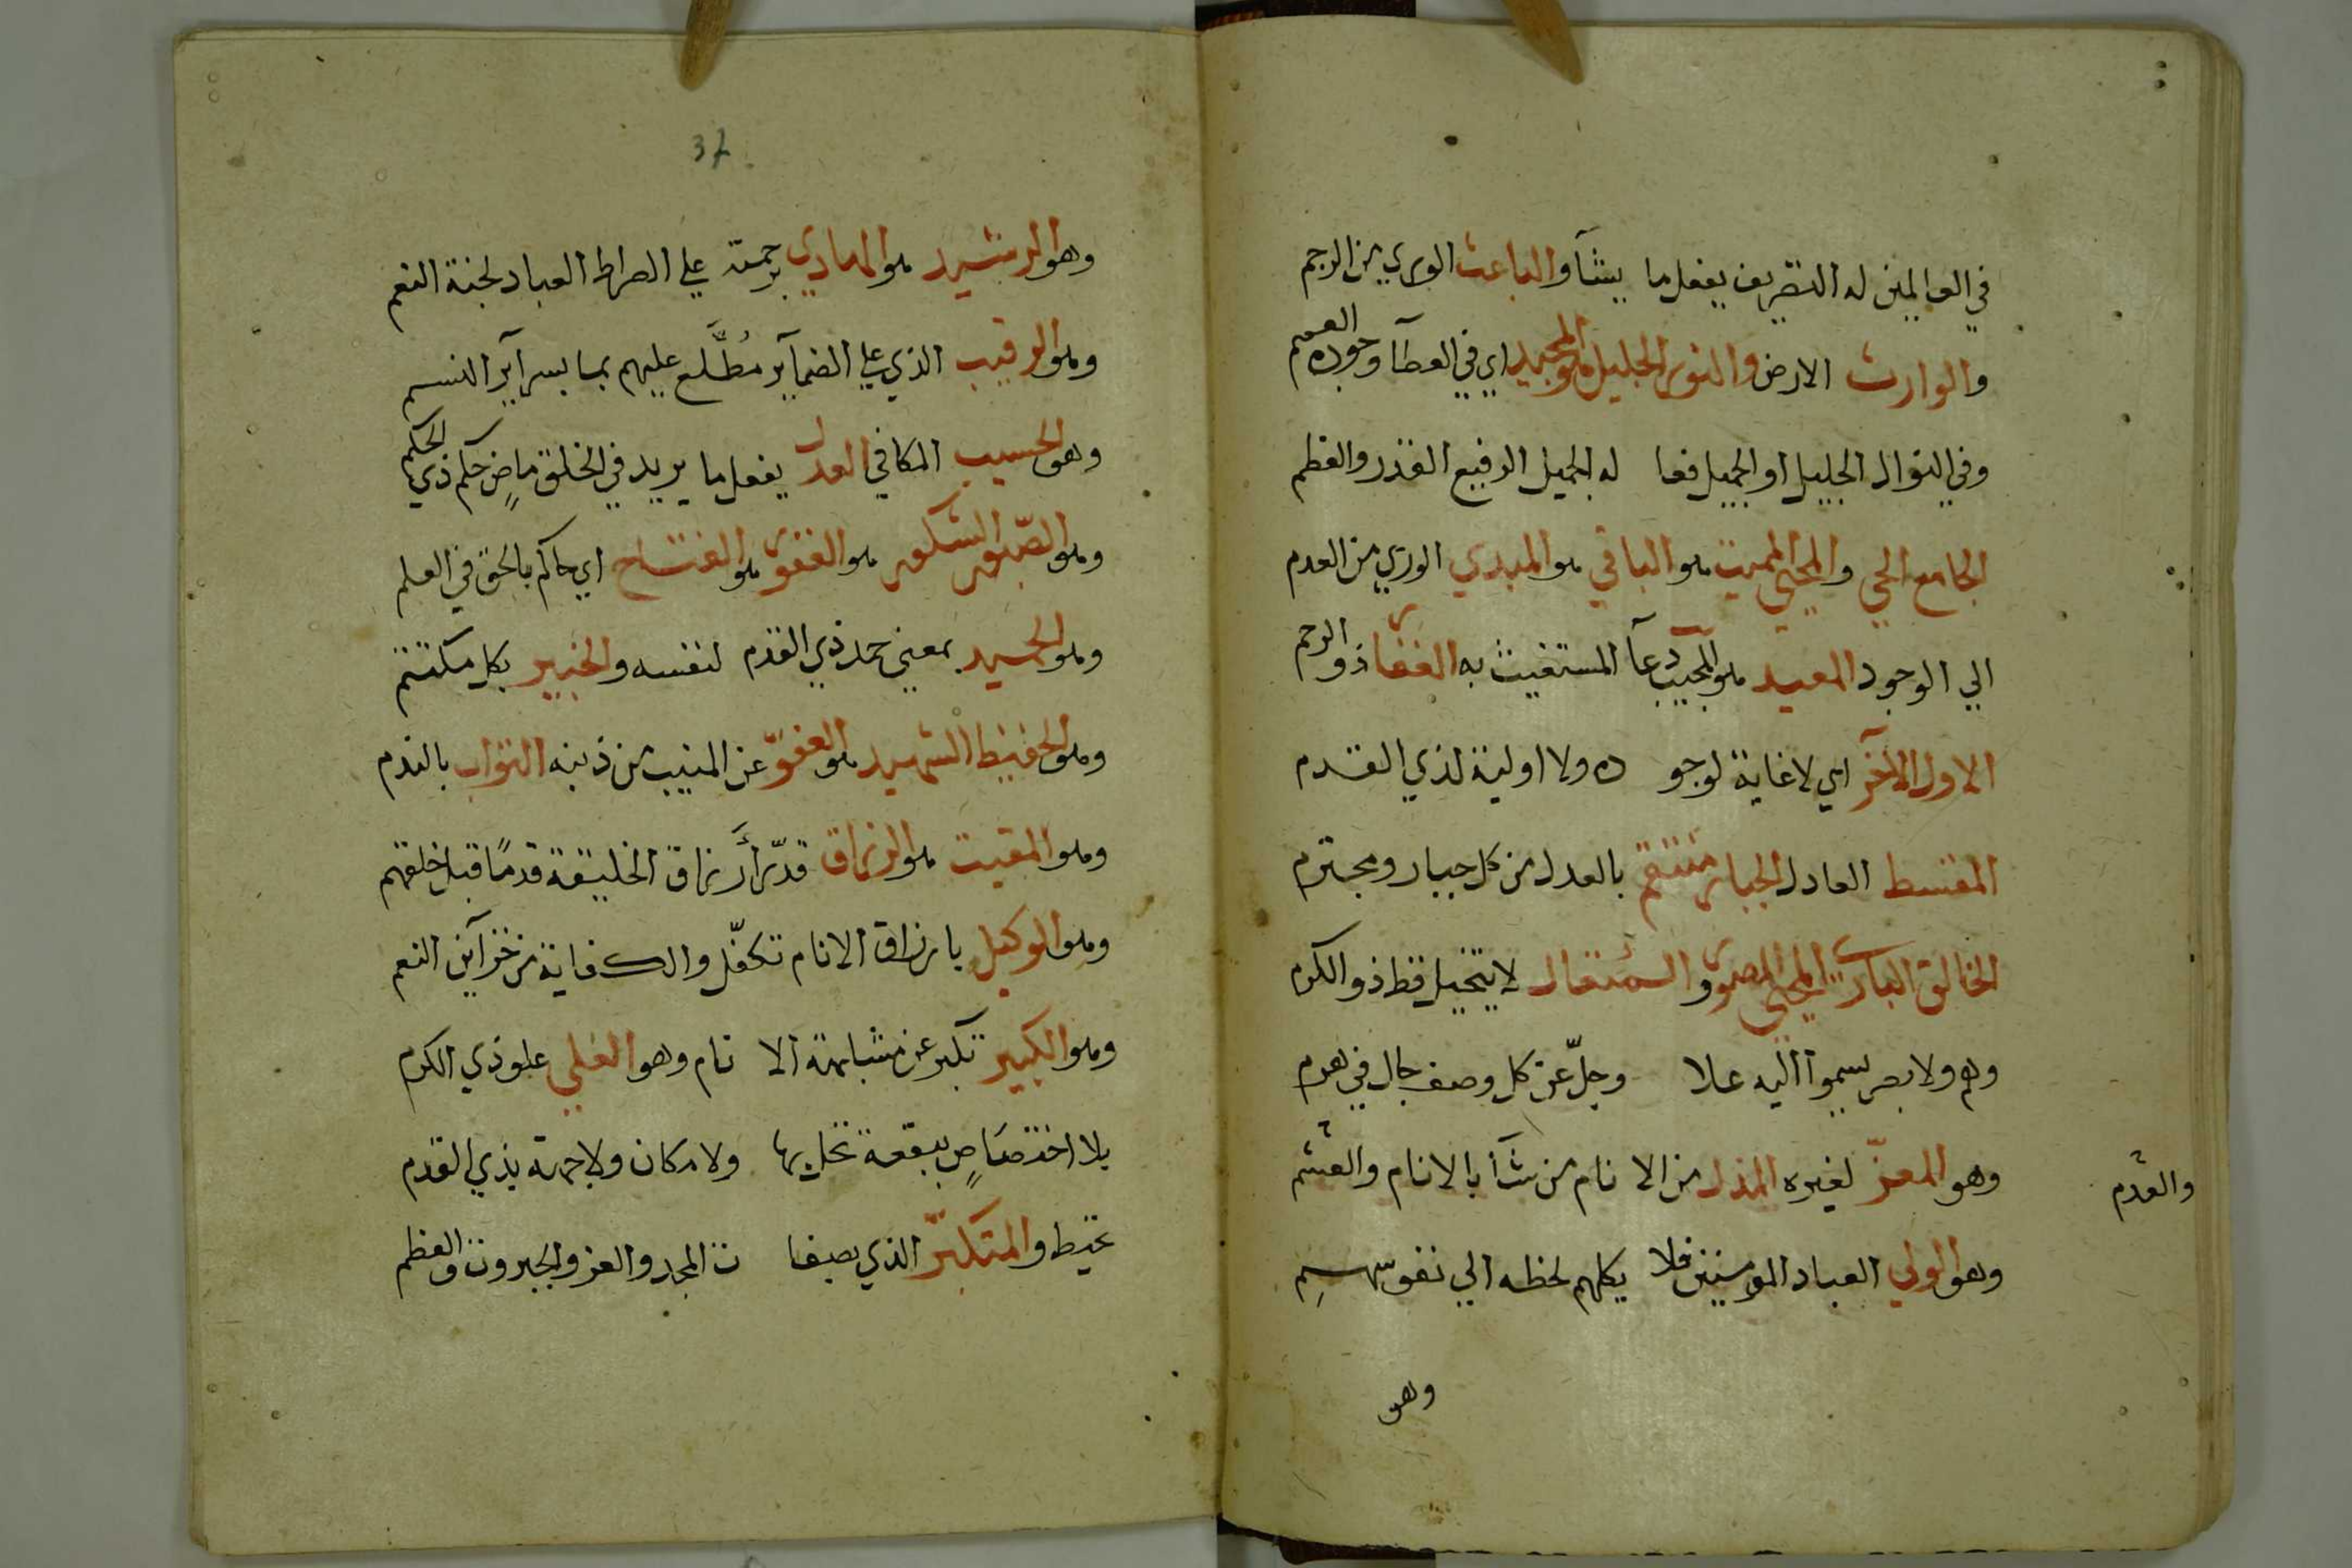 في العالمين له التصريف يفعل ما يشآ والباعث الوري من الرجم
والوارث الارض والنور الجليل هو المجيد اي في العطآ وجوده العمم
وفي النوال الجليل او الجميل فعا له الجميل الرفيع القدر والعظم
الجامع الحي والمحيي المميت هو الباقي هو المبدي الوري من العدم
الي الوجود المعيد هو المجيب دعآ المستغيث به الغفار ذو الرحم
الاول الآخر اي لا غاية لوجو ده ولا اولية لذي القدم
المقسط العادل الجبار منتقم بالعدل من كل جبار ومجترم
الخالق البارئ المحيي المصور والمتعال لا يتخيل قط ذو الكرم
وهم ولا بصر يسموا اليه علا وجلّ عن كل وصف جال في وهم
وهو المعزّ لغيره المذل من الا نام من شآ بالانام والعشم
والعدم
وهو الولي العباد المومنين فلا يكلهم لحظه الي نفوسهم
وهو
37
وهو الرشيد هو الهادي برحمته علي الصراط العباد لجنة النعم
وهو الرقيب الذي علي الضمآير مُطَّلع عليهم بما بسرآير النسم
وهو الحسيب المكافي العدل يفعل ما يريد في الخلق ماضٍ حكم ذي الحكم
وهو الصّبور الشكور هو الغفور هو الفتاح اي حاكم بالحق في العلم
وهو الحميد بمعني حمد ذي القدم لنفسه والخبير بكل مكتتم
وهو الحفيظ الشهيد هو العفوّ عن المنيب من ذنبه التواب بالندم
وهو المقيت هو الرزاق قدّر أرزاق الخليقة قدمًا قبل خلقهم
وهو الوكيل بارزاق الانام تكفّل والكفاية من خزآين النعم
وهو الكبير تكبر عن مشابهة الا نام وهو العلي علو ذي الكرم
بلا اختصاصٍ ببقعة تخليها ولا مكان ولا جهة بذي القدم
تحيط والمتكبّر الذي بصفا ت المجد والعز والجبروت والعظم